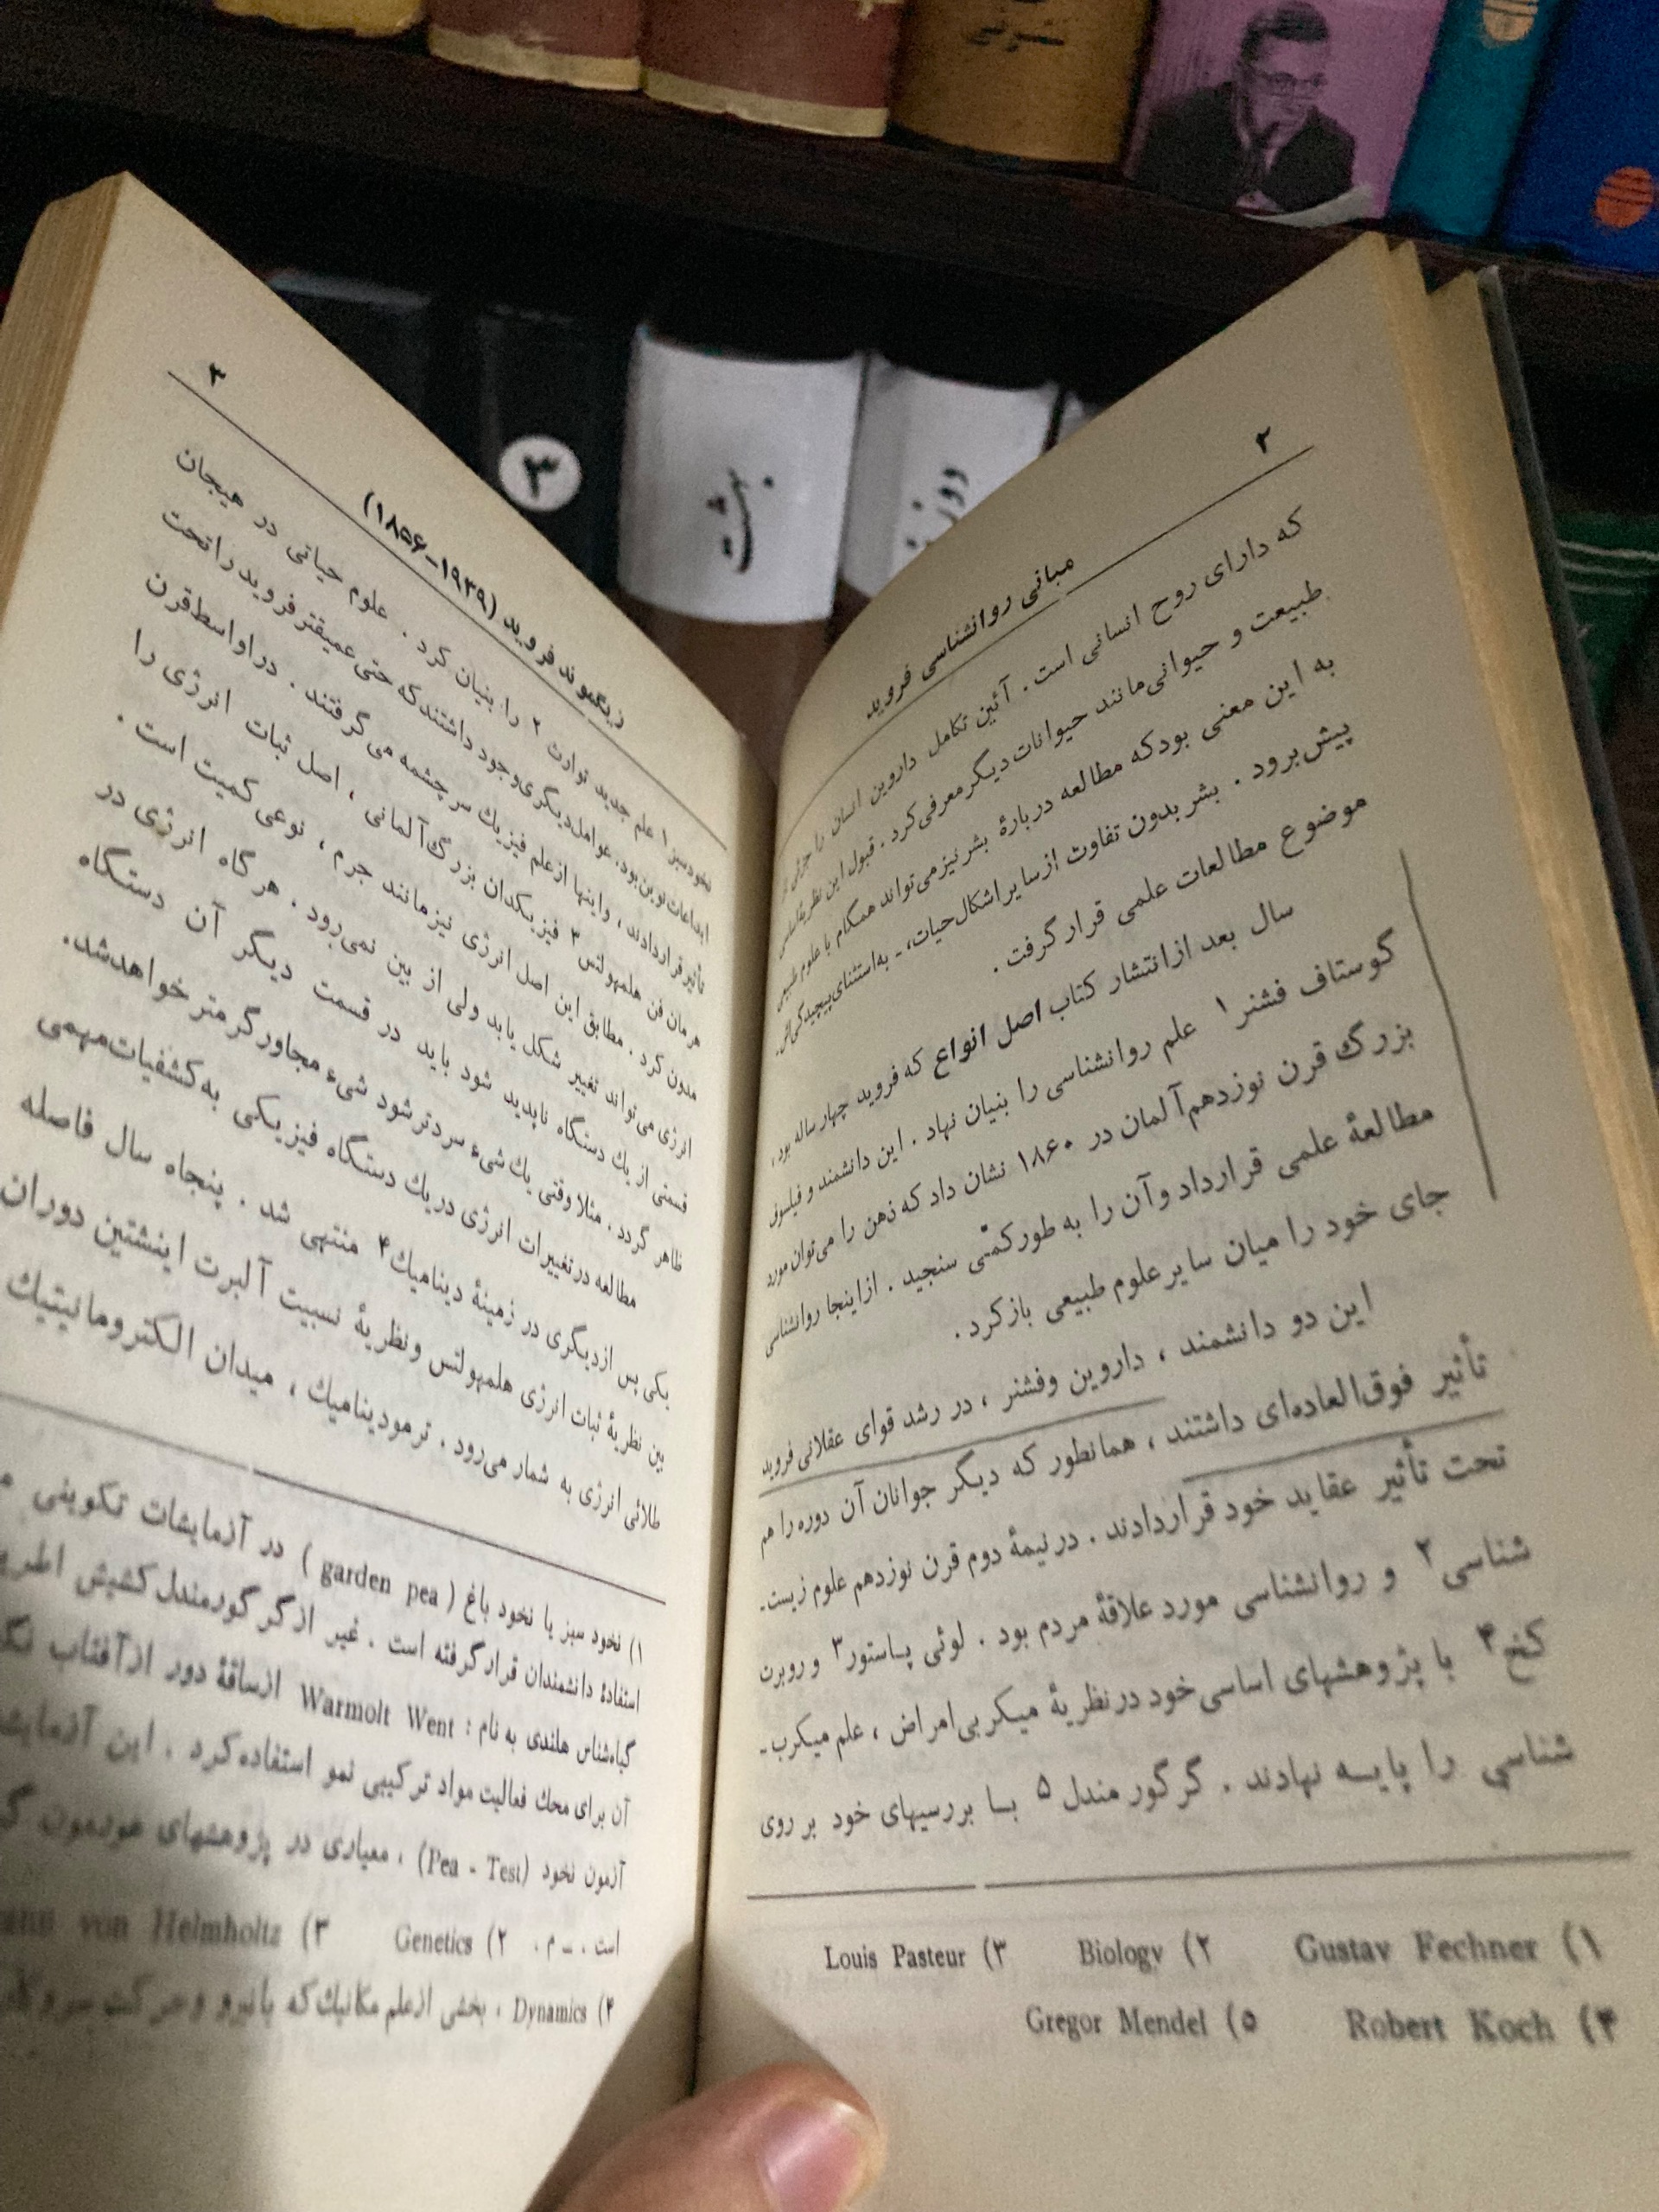 ۲
مبانی روانشناسی فروید
که دارای روح انسانی است . آئین تکامل داروین انسان را جزئی از
طبیعت و حیوانی مانند حیوانات دیگر معرفی کرد . قبول این نظریهٔ اساسی
به این معنی بود که مطالعه دربارهٔ بشر نیز می‌تواند همگام با علوم طبیعی
پیش برود . بشر بدون تفاوت از سایر اشکال حیات، ـ به استثنای پیچیدگی‌اش ـ
موضوع مطالعات علمی قرار گرفت .
سال بعد از انتشار کتاب اصل انواع که فروید چهار ساله بود ،
گوستاف فشنر۱ علم روانشناسی را بنیان نهاد . این دانشمند و فیلسوف
بزرگ قرن نوزدهم آلمان در ۱۸۶۰ نشان داد که ذهن را می‌توان مورد
مطالعهٔ علمی قرار داد و آن را به طور کمّی سنجید . از اینجا روانشناسی
جای خود را میان سایر علوم طبیعی باز کرد .
این دو دانشمند ، داروین و فشنر ، در رشد قوای عقلانی فروید
تأثیر فوق‌العاده‌ای داشتند ، همانطور که دیگر جوانان آن دوره را هم
تحت تأثیر عقاید خود قرار دادند . در نیمهٔ دوم قرن نوزدهم علوم زیست‌ـ
شناسی۲ و روانشناسی مورد علاقهٔ مردم بود . لوئی پاستور۳ و روبرت
کخ۴ با پژوهشهای اساسی خود در نظریهٔ میکربی امراض ، علم میکرب‌ـ
شناسی را پایه نهادند . گرگور مندل۵ با بررسیهای خود بر روی
۱) Gustav Fechner ۲) Biology ۳) Louis Pasteur
۴) Robert Koch ۵) Gregor Mendel
زیگموند فروید (۱۹۳۹ـ۱۸۵۶)
۳
نخود سبز۱ علم جدید توارث۲ را بنیان کرد . علوم حیاتی در هیجان
ابداعات نوین بود . عوامل دیگری وجود داشتند که حتی عمیقتر فروید را تحت
تأثیر قرار دادند ، و اینها از علم فیزیک سرچشمه می‌گرفتند . در اواسط قرن
هرمان فن هلمهولتس۳ فیزیکدان بزرگ آلمانی ، اصل ثبات انرژی را
مدون کرد . مطابق این اصل انرژی نیز مانند جرم ، نوعی کمیت است .
انرژی می‌تواند تغییر شکل یابد ولی از بین نمی‌رود . هرگاه انرژی در
قسمتی از یک دستگاه ناپدید شود باید در قسمت دیگر آن دستگاه
ظاهر گردد . مثلا وقتی یک شیء سردتر شود شیء مجاور گرمتر خواهد شد.
مطالعه در تغییرات انرژی در یک دستگاه فیزیکی به کشفیات مهمی
یکی پس از دیگری در زمینهٔ دینامیک۴ منتهی شد . پنجاه سال فاصله
بین نظریهٔ ثبات انرژی هلمهولتس و نظریهٔ نسبیت آلبرت اینشتین دوران
طلائی انرژی به شمار می‌رود . ترمودینامیک ، میدان الکترومانیتیک
۱) نخود سبز یا نخود باغ ( garden pea ) در آزمایشات تکوینی
استفادهٔ دانشمندان قرار گرفته است . غیر از گرگور مندل کشیش
گیاه‌شناس هلندی به نام : Warmolt Went از ساقهٔ دور از آفتاب
آن برای محک فعالیت مواد ترکیبی نمو استفاده کرد . این
آزمون نخود (Pea - Test) ، معیاری در پژوهشهای هورمون
است . ـ م . ۲) Genetics ۳) von Helmholtz
۴) Dynamics ، بخشی از علم مکانیک که با نیرو و حرکت
۳
بهشت